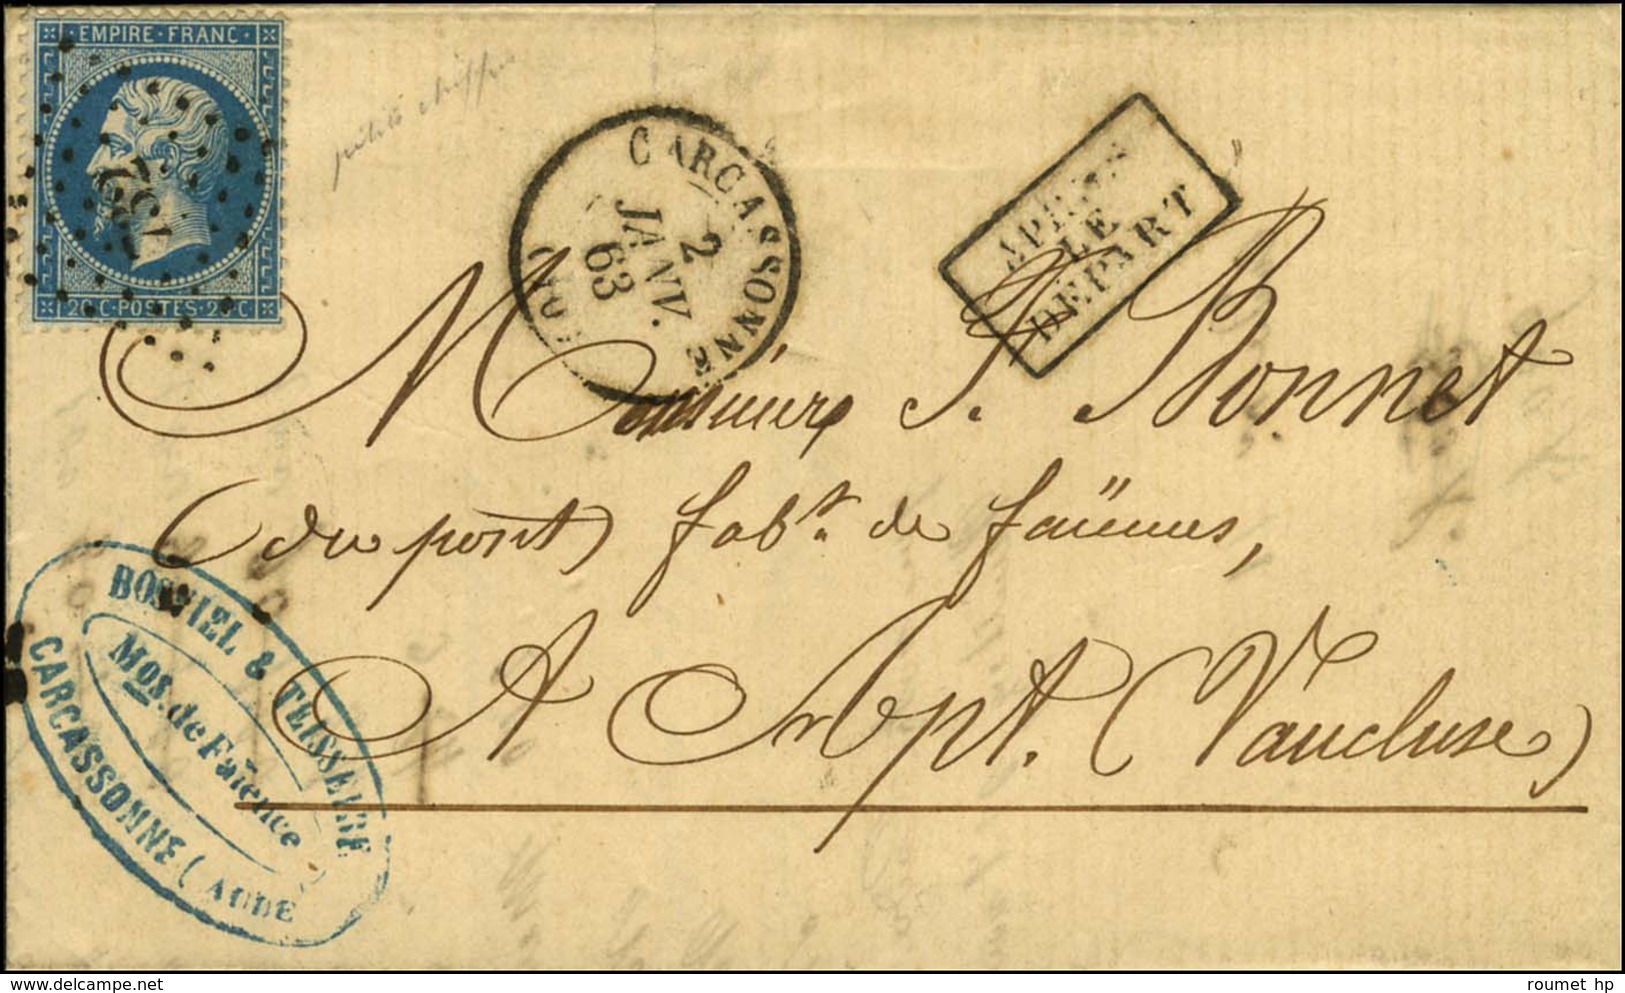 EMPIRE·FRANC·
20·C·POSTES·20·C
petits chiffres
CARCASSONNE
2
JANV.
63
APRÈS
LE
DÉPART
Monsieur J. Bonnet
(du pont) fabt. de faïences,
A Apt. (Vaucluse)
BOSVIEL & TEISSEIRE
Mds. de Faïence
CARCASSONNE (AUDE
delcampe.net
roumet_hp